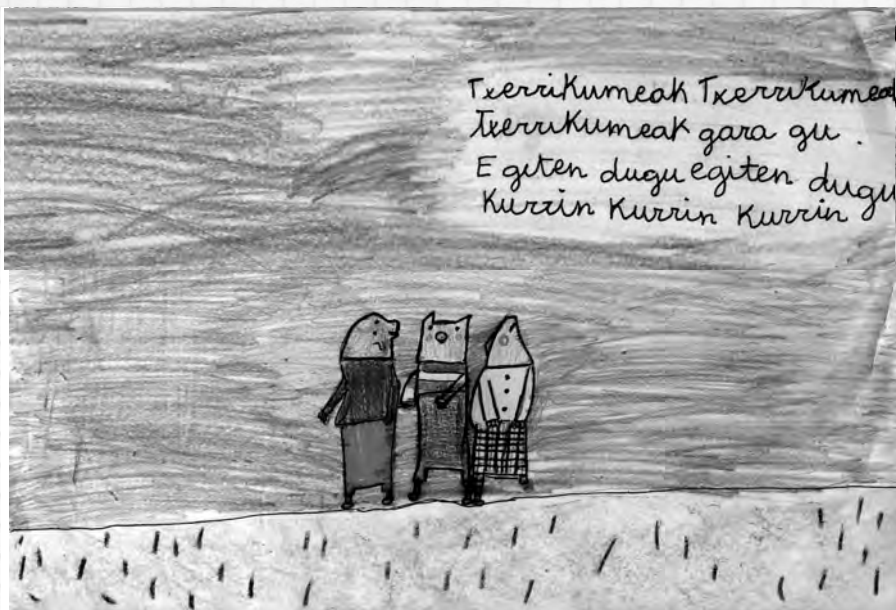 Txerrikumeak Txerrikumeak
Txerrikumeak gara gu.
Egiten dugu egiten dugu
Kurrin Kurrin Kurrin